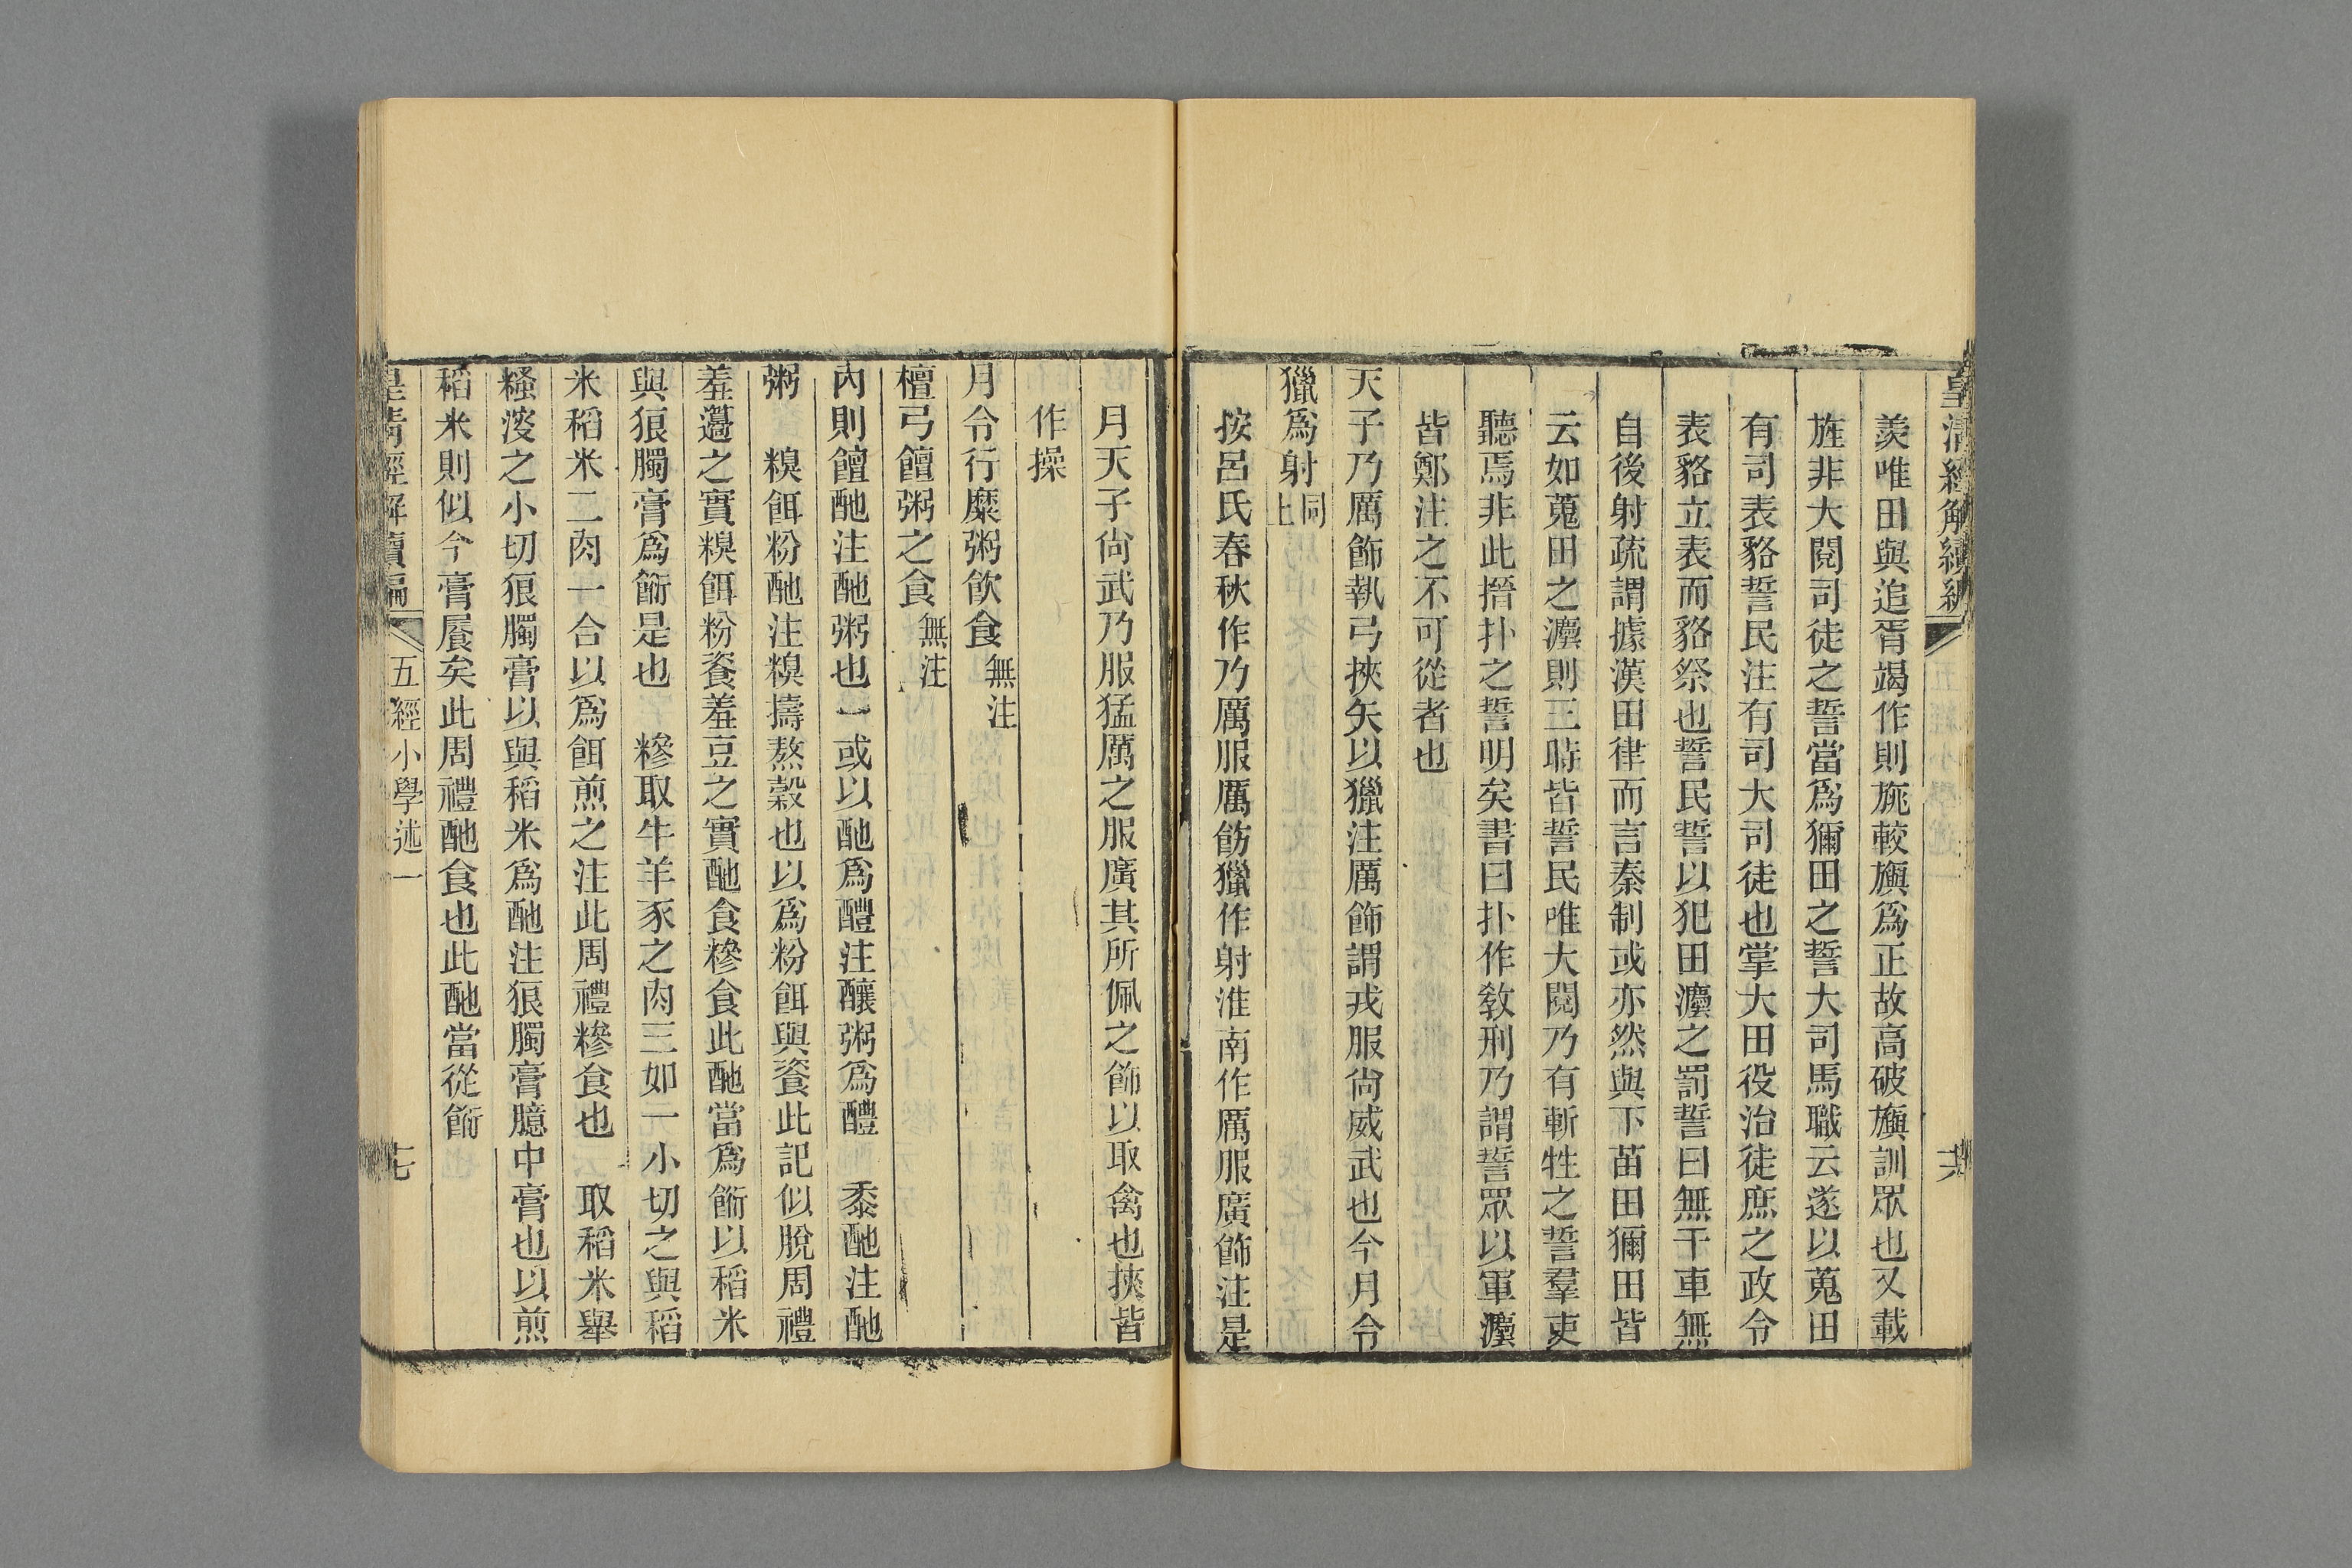 皇清經解續編
十六
羨唯田與追胥竭作則旐較旟爲正故高破旟訓眾也又載
旌非大閱司徒之誓當爲獮田之誓大司馬職云遂以蒐田
有司表貉誓民注有司大司徒也掌大田役治徒庶之政令
表貉立表而貉祭也誓民誓以犯田灋之罰誓曰無干車無
自後射疏謂據漢田律而言秦制或亦然與下苗田獮田皆
云如蒐田之灋則三時皆誓民唯大閱乃有斬牲之誓羣吏
聽焉非此搢扑之誓明矣書曰扑作敎刑乃謂誓眾以軍灋
皆鄭注之不可從者也
天子乃厲飾執弓挾矢以獵注厲飾謂戎服尙威武也今月令
獵爲射同上
按呂氏春秋作乃厲服厲飭獵作射淮南作厲服廣飾注是
月天子尙武乃服猛厲之服廣其所佩之飾以取禽也挾皆
作操
月令行糜粥飲食無注
檀弓饘粥之食無注
內則饘酏注酏粥也一或以酏爲醴注釀粥爲醴 黍酏注酏
粥 糗餌粉酏注糗擣熬穀也以爲粉餌與餈此記似脫周禮
羞籩之實糗餌粉餈羞豆之實酏食糝食此酏當爲䬳以稻米
與狼臅膏爲䬳是也 糝取牛羊豕之肉三如一小切之與稻
米稻米二肉一合以爲餌煎之注此周禮糝食也 取稻米舉
糔溲之小切狼臅膏以與稻米爲酏注狼臅膏臆中膏也以煎
稻米則似今膏䬾矣此周禮酏食也此酏當從䬳
皇清經解續編
五經小學述一
十七